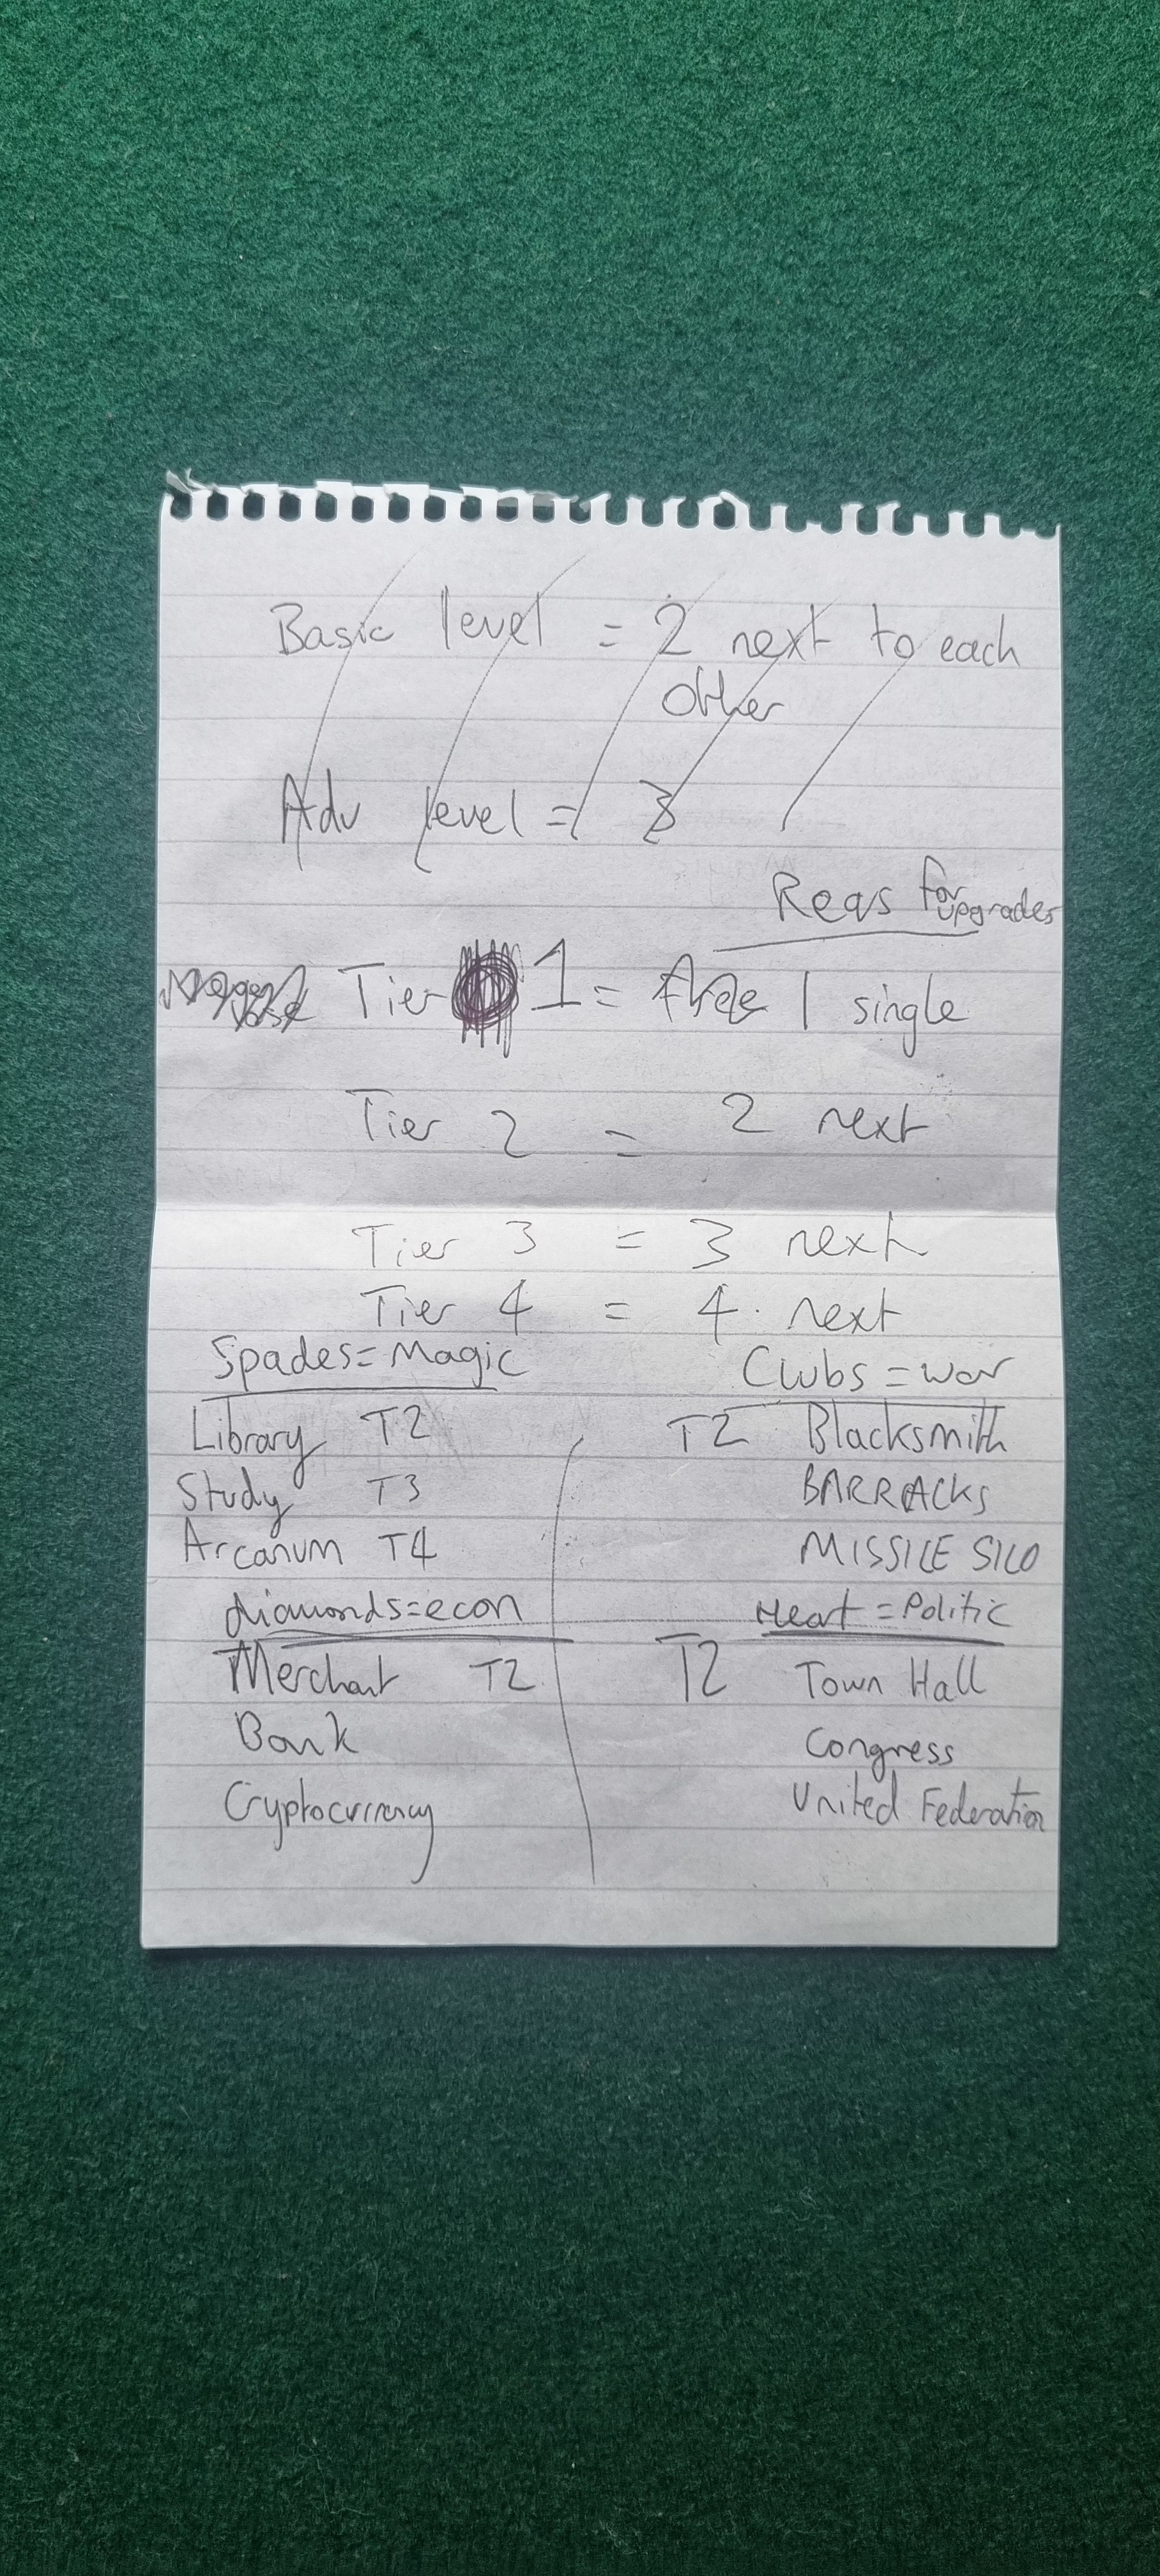 Basic level = 2 next to each
other
Adv level = 3
Reqs for upgrades
Tier 1 = free 1 single
Tier 2 = 2 next
Tier 3 = 3 next
Tier 4 = 4 next
Spades = Magic
Library T2
Study T3
Arcanum T4
diamonds = econ
Merchant T2
Bank
Cryptocurrency
Clubs = war
T2 Blacksmith
BARRACKS
MISSILE SILO
Heart = Politic
T2 Town Hall
Congress
United Federation